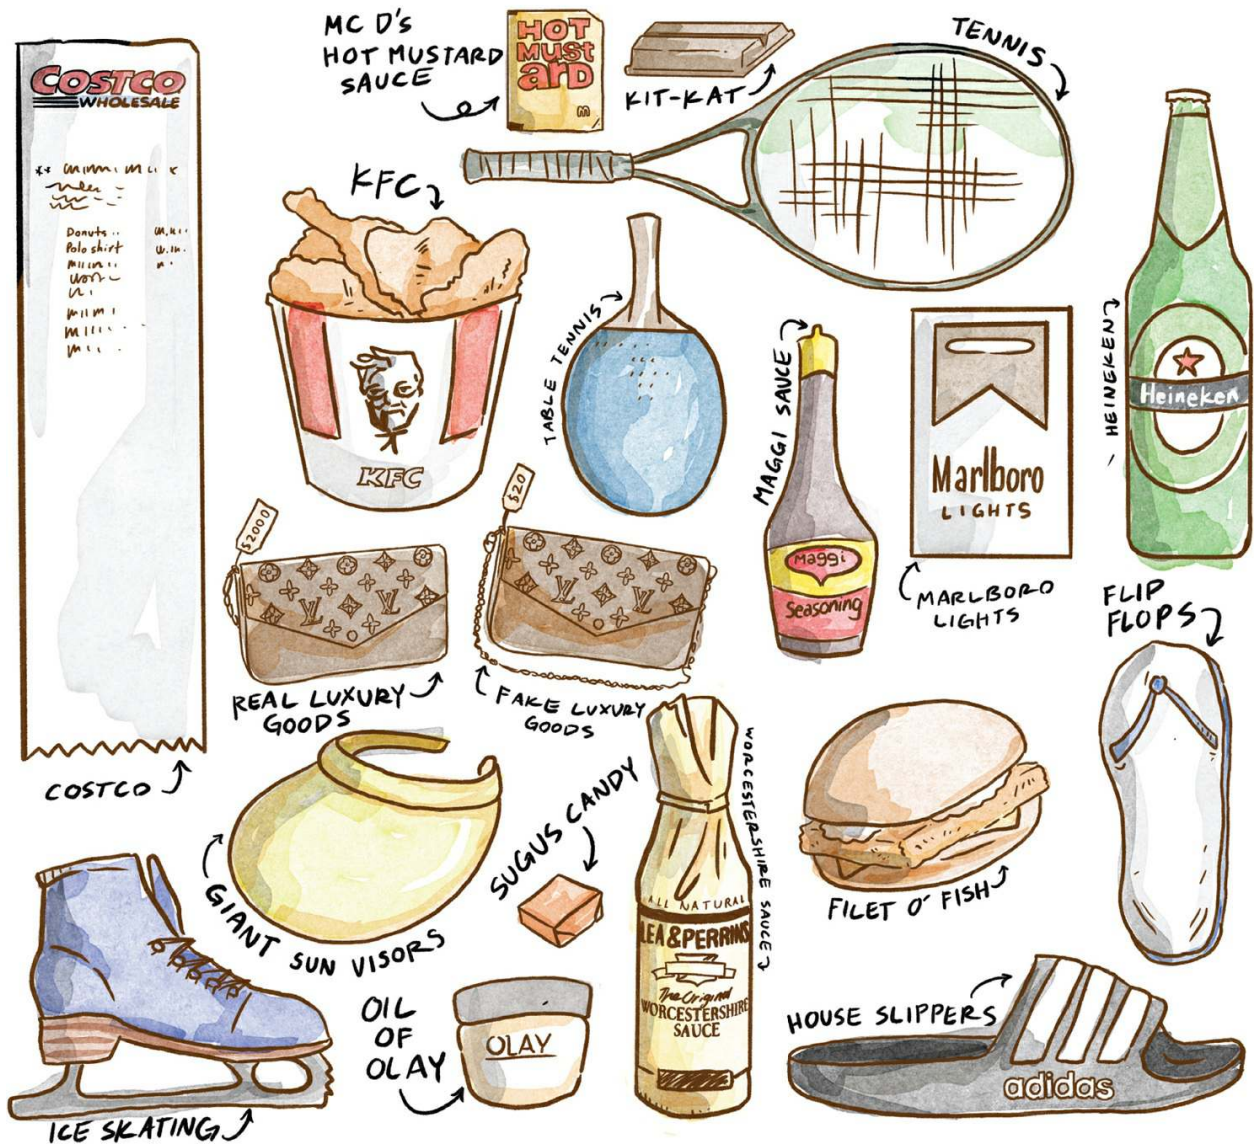 COSTCO
WHOLESALE
Donuts
Polo shirt
COSTCO
MC D's
HOT MUSTARD
SAUCE
HOT
Must
arD
m
KIT-KAT
TENNIS
KFC
KFC
TABLE TENNIS
MAGGI SAUCE
Maggi
Seasoning
Marlboro
LIGHTS
MARLBORO
LIGHTS
HEINEKEN
Heineken
$2000
LV
LV
REAL LUXURY
GOODS
$20
LV
LV
FAKE LUXURY
GOODS
FLIP
FLOPS
GIANT SUN VISORS
SUGUS CANDY
WORCESTERSHIRE SAUCE
ALL NATURAL
LEA & PERRINS
The Original
WORCESTERSHIRE
SAUCE
FILET O' FISH
ICE SKATING
OIL
OF
OLAY
OLAY
HOUSE SLIPPERS
adidas